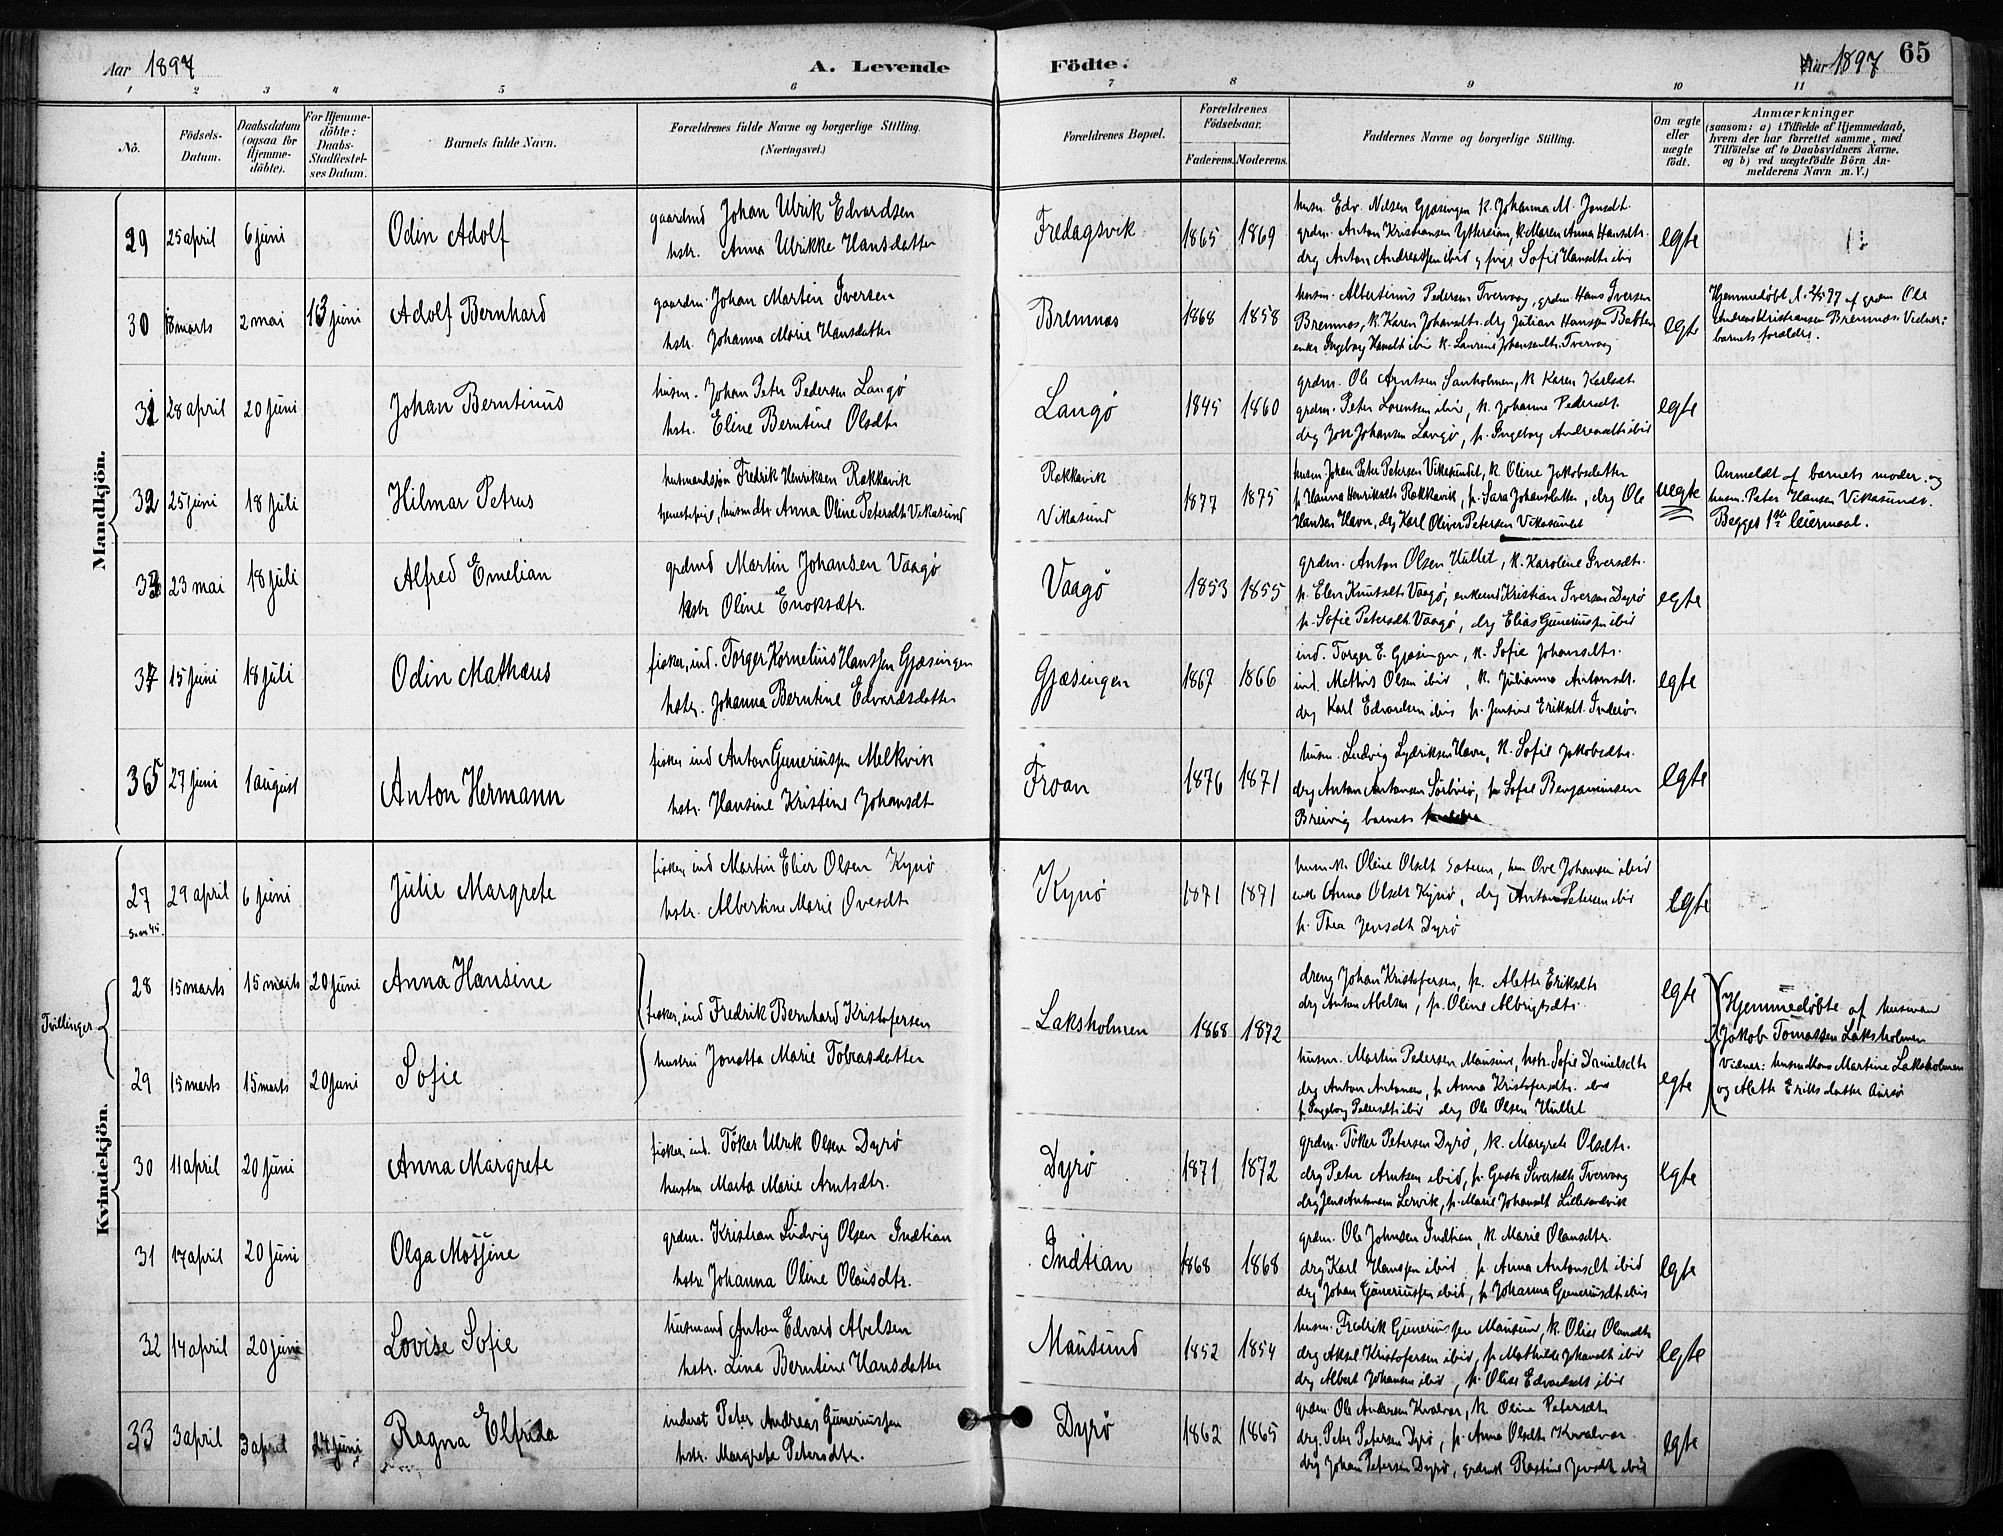 Aar 1897
A. Levende
Födte.
Aar 1897
65
1 2 3 4 5 6 7 8 9 10 11
No.
Födsels-
Datum.
Daabsdatum
(ogsaa for
Hjemme-
döbte).
For Hjemme-
döbte:
Daabs-
Stadfæstel-
ses Datum.
Barnets fulde Navn.
Forældrenes fulde Navne og borgerlige Stilling.
(Næringsvei.)
Forældrenes Bopæl.
Forældrenes
Födselsaar.
Faderens. Moderens.
Faddernes Navne og borgerlige Stilling.
Om ægte
eller
uægte
födt.
Anmærkninger
(saasom: a) i Tilfælde af Hjemmedaab,
hvem der har forrettet samme, med
Tilföielse af to Daabsvidners Navne.
og b) ved uægtefödte Börn An-
melderens Navn m.V.)
Mandkjön.
29 25 april 6 juni
Odin Adolf
gaardmd Johan Ulrik Edvardsen
hstr. Anna Ulrikke Hansdatter
Fredagsvik
1865 1869
husm. Edv. Nilsen Gjæsingen k. Johanna M. Jonsdt.
grdm. Anton Kristiansen Yttereian, k. Maren Anna Hansdtr.
drg Anton Andreassen ibid og pige Sofie Hansdtr ibid
egte
30 18 marts 2 mai 13 juni
Adolf Bernhard
gaardm. Johan Martin Iversen
hstr. Johanna Marie Hansdatter
Bremnæs
1868 1858
husm. Albertinus Pedersen Tvervaag, grdm Hans Iversen
Bremnæs, k. Karen Johansdtr. drg Julian Hanssen Batten
enke Ingeborg Hansdt ibid k. Laurine Johansdtr. Tvervaag
egte
Hjemmedøbt d. 2/5 97 af grdm Ole
Andreas Kristiansen Bremnæs. Vidner:
barnets forældre.
31 28 april 20 juni
Johan Berntinus
husm. Johan Peter Pedersen Langø
hstr. Eline Berntine Olsdtr
Langø
1845 1860
grdm. Ole Arntsen Sanholmen, k Karen Karlsdt.
grdm. Peter Lorentsen ibid, k. Johanna Pedersdt.
drg Jon Johansen Langø, p. Ingeborg Andreasdtr ibid
egte
32 25 juni 18 juli
Hilmar Petrus
husmandssøn Fredrik Henriksen Rakkavik
tjenestepige, husmdtr Anna Oline Petersdtr Vikasund
Rakkavik
Vikasund
1877 1875
husm Johan Peter Petersen Vikasundet, k. Oline Jakobsdatter
p. Hanna Henriksdtr Rakkavik, p. Sara Johansdatter, drg Ole
Hansen Havn, drg Karl Oliver Petersen Vikasundet
uegte
Anmeldt af barnets moder og
husm. Peter Hansen Vikasundt.
Begges 1ste leiermaal.
33 23 mai 18 juli
Alfred Emelian
grdmd Martin Johansen Vaagø
hstr Oline Enoksdtr.
Vaagø
1853 1855
grdm. Anton Olsen Hullet, k. Karoline Iversdtr.
p. Elen Knutsdt Vaagø, enkemd Kristian Iversen Dyrø
p. Sofie Petersdt Vaagø, drg Elias Guneriussen ibid
egte
34 15 juni 18 juli
Odin Mathæus
fisker, ind. Torger Kornelius Hanssen Gjæsingen
hstr. Johanna Berntine Edvardsdatter
Gjæsingen
1867 1866
ind. Torger E. Gjæsingen, k. Sofie Johansdtr.
ind. Mathis Olsen ibid, k. Julianna Antonsdt.
drg Karl Edvardsen ibid p. Jensine Eriksdt. Inderø.
egte
35 27 juni 1 august
Anton Hermann
fisker ind Anton Guneriussen Melkvik
hstr. Hansine Kristine Johansdt
Froan
1876 1871
husm. Ludvig Lydriksen Havn, k. Sofie Jakobsdtr.
drg Anton Antonsen Sørburø, p. Sofie Benjaminsen
Breivig barnets
egte
Kvindekjön.
27 29 april 6 juni
Julie Margrete
fisker, ind Martin Elier Olsen Kynø
hstr. Albertine Marie Ovesdt
Kyrø
1871 1871
husm k. Oline Olsdt, husm Ove Johansen ibid
enke Anna Olsdt Kyrø, drg Anton Petersen ibid
p. Thea Jensdt Dyrø
egte
Tvillinger
28 15 marts 15 marts 20 juni
Anna Hansine
fisker, ind Fredrik Bernhard Kristofersen
hustru Jonetta Marie Tobiasdatter
Laksholmen
1868 1872
dreng Johan Kristofersen, p. Alette Eriksdtr
drg Anton Abelsen, p. Oline Albrigtsdtr.
egte
Hjemmedøbte af husman
Jakob Tomassen Laksholmen
Vidner: Martine Laksholmen
og Alette Eriksdatter Aursø
29 15 marts 15 marts 20 juni
Sofie
husm. Martin Pedersen Mausund, hstr. Sofie Danielsdtr
drg Anton Antonsen, p Anna Kristofersdtr. ibid
p. Ingeborg Petersdt ibid drg Ole Olsen Hullet
egte
30 11 april 20 juni
Anna Margrete
fisker, ind. Tøker Ulrik Olsen Dyrø
hustru Marta Marie Arntsdtr.
Dyrø
1871 1872
grdm. Tøker Petersen Dyrø, k. Margrete Olsdtr.
drg Peter Arntsen ibid, p. Gusta Sivertsdtr Tvervaag
drg Jens Antonsen Lervik, p. Marie Johansdt Lillesandvik
egte
31 17 april 20 juni
Olga Mossine
grdm. Kristian Ludvig Olsen Indtian
hstr. Johanna Oline Olausdtr.
Indtian
1868 1868
grdm. Ole Johnsen Indtian, k. Marie Olausdtr.
drg Karl Hanssen ibid p. Anna Antonsdt ibid
drg Johan Guneriussen ibid, p. Johanna Guneriusdt ibid
egte
32 14 april 20 juni
Lovise Sofie
husmand Anton Edvard Abelsen
hstr. Lina Berntine Hansdatter
Mausund
1852 1854
husm. Fredrik Guneriussen Mausund, k. Olise Olausdtr
drg Aksel Kristofersen ibid, p. Mathilde Johansdt ibid
drg Albert Johansen ibid, p. Olise Edvardsdt ibid
egte
33 3 april 3 april 24 juni
Ragna Elfrida
inderst Peter Andreas Guneriussen
hstr. Margrete Petersdtr.
Dyrø
1862 1865
grdm. Ole Andersen Kvalvær, k. Olina Petersdtr
drg. Peter Petersen Dyrø, p. Anna Olsdtr Kvalvær
drg Johan Petersen Dyrø, grdmk Jensdt ibid
egte